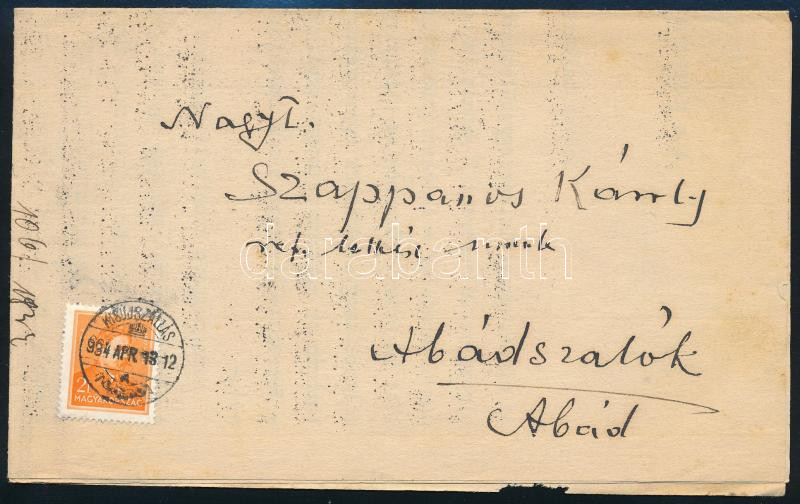 Nagyt.
Szappanos Károly
ref. lelkész urnak
Abádszalók
Abád
KISUJSZÁLLÁS
934 APR 13 12
MAGYARORSZÁG
darabanth